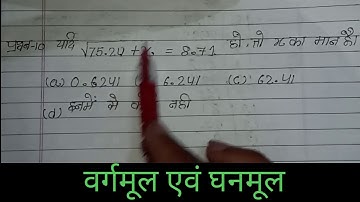 प्रश्न-10 यदि √75.24 + x = 8.71 हो, तो x का मान है।
(a) 0.6241 6.241 (c) 62.41
(d) इनमें से नहीं
वर्गमूल एवं घनमूल